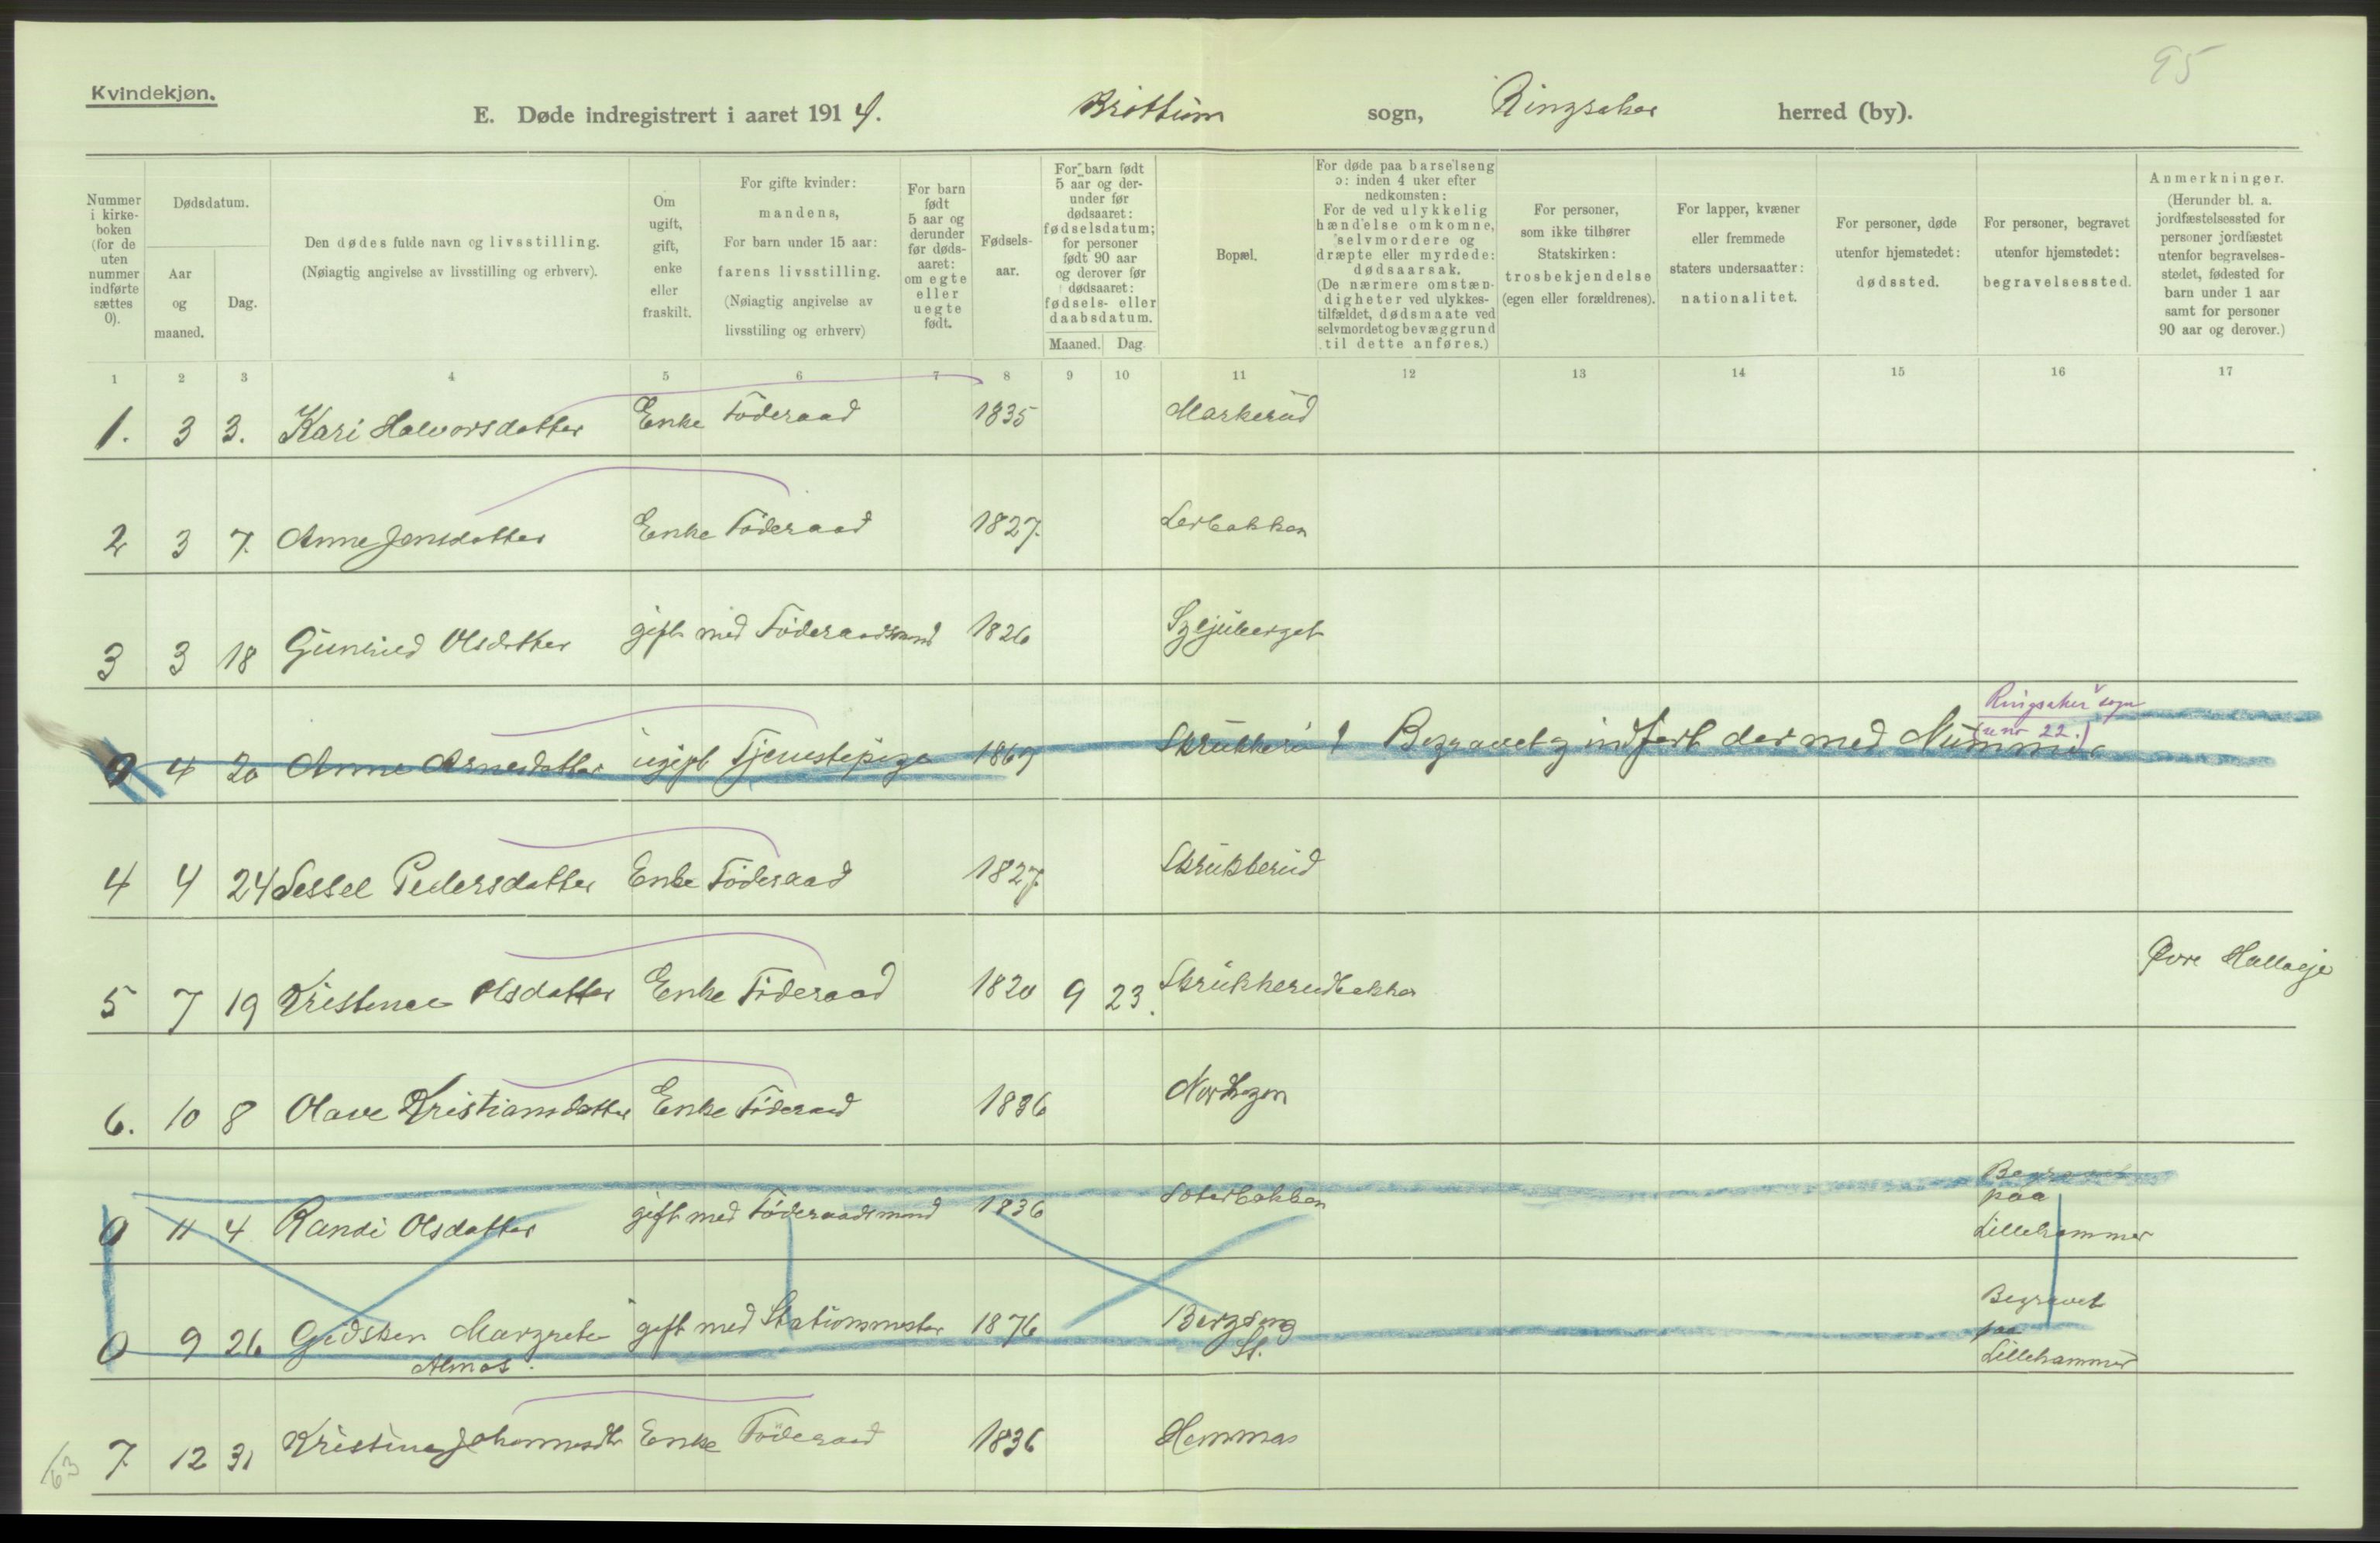 95
Kvindekjøn.
E. Døde indregistrert i aaret 1914. Brøttum sogn, Ringsaker herred (by).
Nummer i kirkeboken (for de uten nummer indførte sættes 0).
Dødsdatum.
Aar og maaned.
Dag.
Den dødes fulde navn og livsstilling.
(Nøiagtig angivelse av livsstilling og erhverv).
Om ugift, gift, enke eller fraskilt.
For gifte kvinder: mandens,
For barn under 15 aar: farens livsstilling.
(Nøiagtig angivelse av livsstiling og erhverv)
For barn født 5 aar og derunder før dødsaaret: om egte eller uegte født.
Fødselsaar.
For barn født 5 aar og derunder før dødsaaret: fødselsdatum; for personer født 90 aar og derover før dødsaaret: fødsels- eller daabsdatum.
Maaned. Dag.
Bopæl.
For døde paa barselseng ɔ: inden 4 uker efter nedkomsten:
For de ved ulykkelig hændelse omkomne, selvmordere og dræpte eller myrdede: dødsaarsak.
(De nærmere omstændigheter ved ulykkestilfældet, dødsmaate ved selvmordet og bevæggrund til dette anføres.)
For personer, som ikke tilhører Statskirken: trosbekjendelse (egen eller forældrenes).
For lapper, kvæner eller fremmede staters undersaatter: nationalitet.
For personer, døde utenfor hjemstedet: dødssted.
For personer, begravet utenfor hjemstedet: begravelsessted.
Anmerkninger.
(Herunder bl. a. jordfæstelsessted for personer jordfæstet utenfor begravelsesstedet, fødested for barn under 1 aar samt for personer 90 aar og derover.)
1 2 3 4 5 6 7 8 9 10 11 12 13 14 15 16 17
1. 3 3. Kari Halvorsdatter Enke Föderaad 1835 Markerud
2 3 7. Anne Jensdatter Enke Föderaad 1827. Lerbakken
3 3 18 Gunhild Olsdatter gift med Föderaadsmand 1826
Ringsaker sogn
0 4 20 Anne Arnesdatter ugift Tjenestepige 1869 Skrukkerud Begravet og indført der med Nummer
(unr 22.)
4 4 24 Sessel Pedersdatter Enke Föderaad 1827. Skrukkerud
5 7 19 Kristence Olsdatter Enke Föderaad 1820 9 23. Skrukkerudbakken Øvre
6. 10 8 Olave Kristiansdatter Enke Föderaad 1836 Nordhagen
0 11 4 Randi Olsdatter gift med Föderaadsmand 1836 Begravet
paa
Lillehammer
0 9 26 Gidsken Margrete gift med Stationsmester 1876 Bergseng Begravet
Almos. St. paa
Lillehammer
7. 12 31 Kristine Johannesdtr Enke Föderaad 1836 Hemma
63